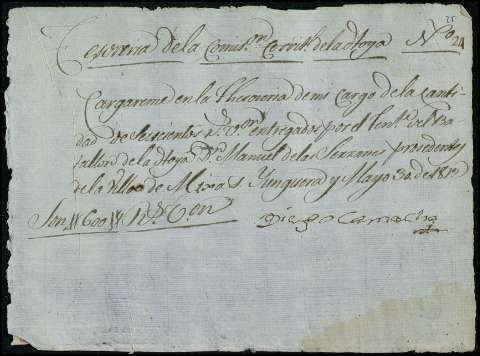 25
Tesoreria de la Comis.on Corrib.l de la Hoya N.o 24
Cargareme en la Thesoreria de mi Cargo de la canti-
dad de Seiscientos r.s v.on entregados por el Ten.te del Ba
tallon de la Hoya D.n Manuel de las procedentes
de la Villa de Mixas Yunquera y Mayo 30 de 1812
Son # 600 # R.s Von
Diego Camacho